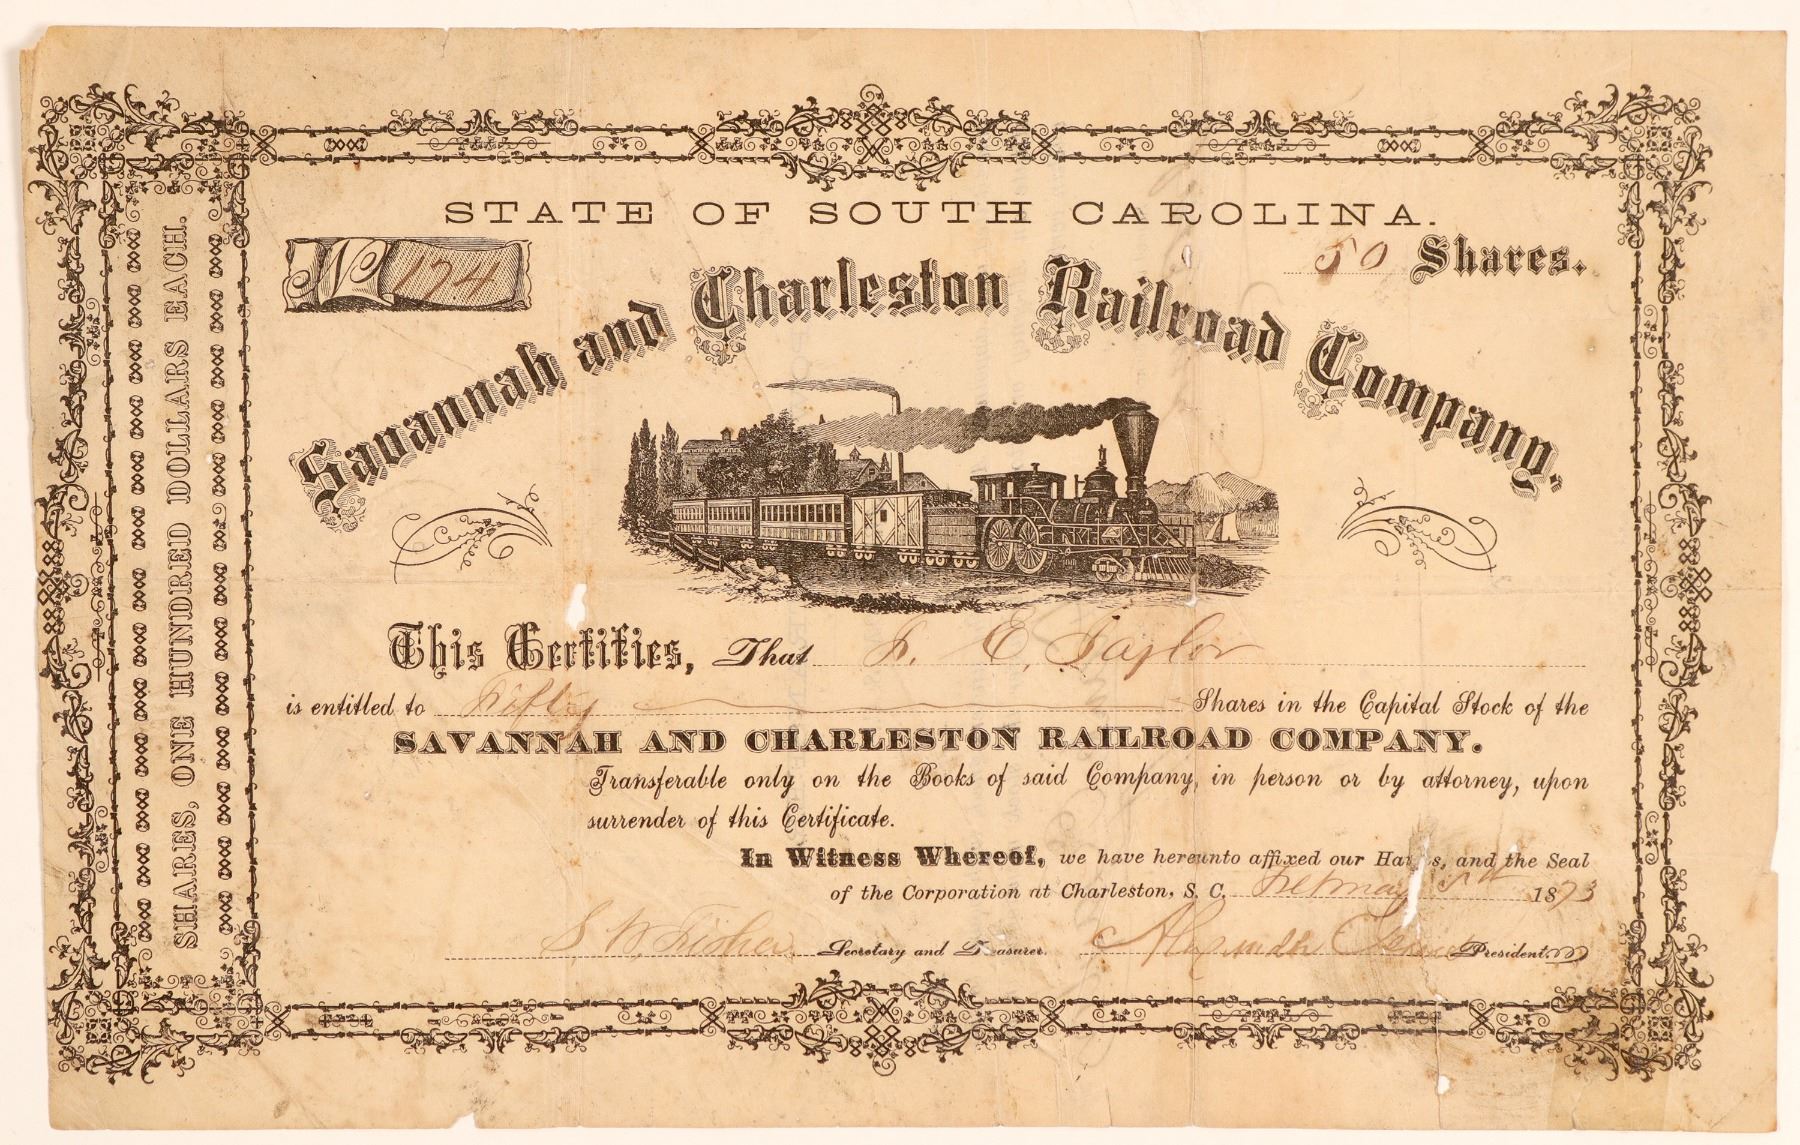 STATE OF SOUTH CAROLINA.
No 174
50 Shares.
Savannah and Charleston Railroad Company.
This Certifies, That E. Taylor
is entitled to Fifty Shares in the Capital Stock of the
SAVANNAH AND CHARLESTON RAILROAD COMPANY.
Transferable only on the Books of said Company, in person or by attorney, upon
surrender of this Certificate.
In Witness Whereof, we have hereunto affixed our Ha s, and the Seal
of the Corporation at Charleston, S. C. 1873
S. W. Fisher Secretary and Treasurer. Alexander President
SHARES, ONE HUNDRED DOLLARS EACH.